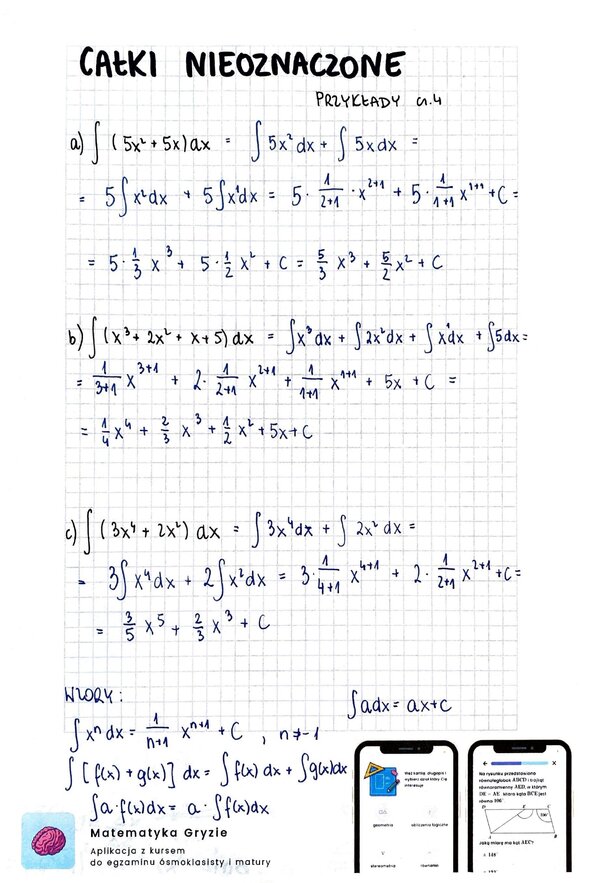 CAŁKI NIEOZNACZONE
PRZYKŁADY cz.4
a) ∫ (5x² + 5x) dx = ∫ 5x² dx + ∫ 5x dx =
= 5∫x²dx + 5∫x¹dx = 5 · 1/(2+1) · x²⁺¹ + 5 · 1/(1+1) x¹⁺¹ + C =
= 5 · 1/3 x³ + 5 · 1/2 x² + C = 5/3 x³ + 5/2 x² + C
b) ∫ (x³ + 2x² + x + 5) dx = ∫x³dx + ∫2x²dx + ∫x¹dx + ∫5dx =
= 1/(3+1) x³⁺¹ + 2 · 1/(2+1) x²⁺¹ + 1/(1+1) x¹⁺¹ + 5x + C =
= 1/4 x⁴ + 2/3 x³ + 1/2 x² + 5x + C
c) ∫ (3x⁴ + 2x²) dx = ∫3x⁴dx + ∫ 2x² dx =
= 3∫x⁴dx + 2∫x²dx = 3 · 1/(4+1) x⁴⁺¹ + 2 · 1/(2+1) x²⁺¹ + C =
= 3/5 x⁵ + 2/3 x³ + C
WZORY:
∫adx = ax+c
∫ xⁿ dx = 1/(n+1) xⁿ⁺¹ + C , n ≠ -1
∫ [f(x) + g(x)] dx = ∫f(x) dx + ∫g(x)dx
∫a·f(x)dx = a · ∫f(x)dx
Matematyka Gryzie
Aplikacja z kursem
do egzaminu ósmoklasisty i matury
wybierz dział który Cię
interesuje
geometria
obliczenia logiczne
stereometria
równania
Na rysunku przedstawiono
równoległobok ABCD i trójkąt
równoramienny AED, w którym
DE = AE. Miara kąta BCE jest
równa 106°.
D E C
106°
A B
Jaką miarę ma kąt AEC?
A 148°